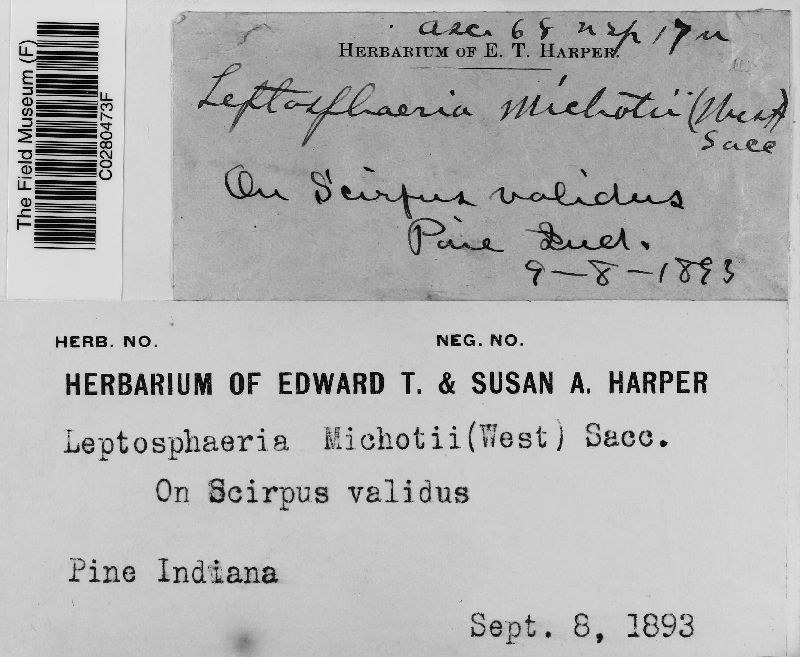 The Field Museum (F)
C0280473F
asc. 68 n sp 17 u
HERBARIUM OF E. T. HARPER.
Leptosphaeria Michotii (West)
Sacc
On Scirpus validus
Pine Ind.
9-8-1893
HERB. NO. NEG. NO.
HERBARIUM OF EDWARD T. & SUSAN A. HARPER
Leptosphaeria Michotii(West) Sacc.
On Scirpus validus
Pine Indiana
Sept. 8, 1893